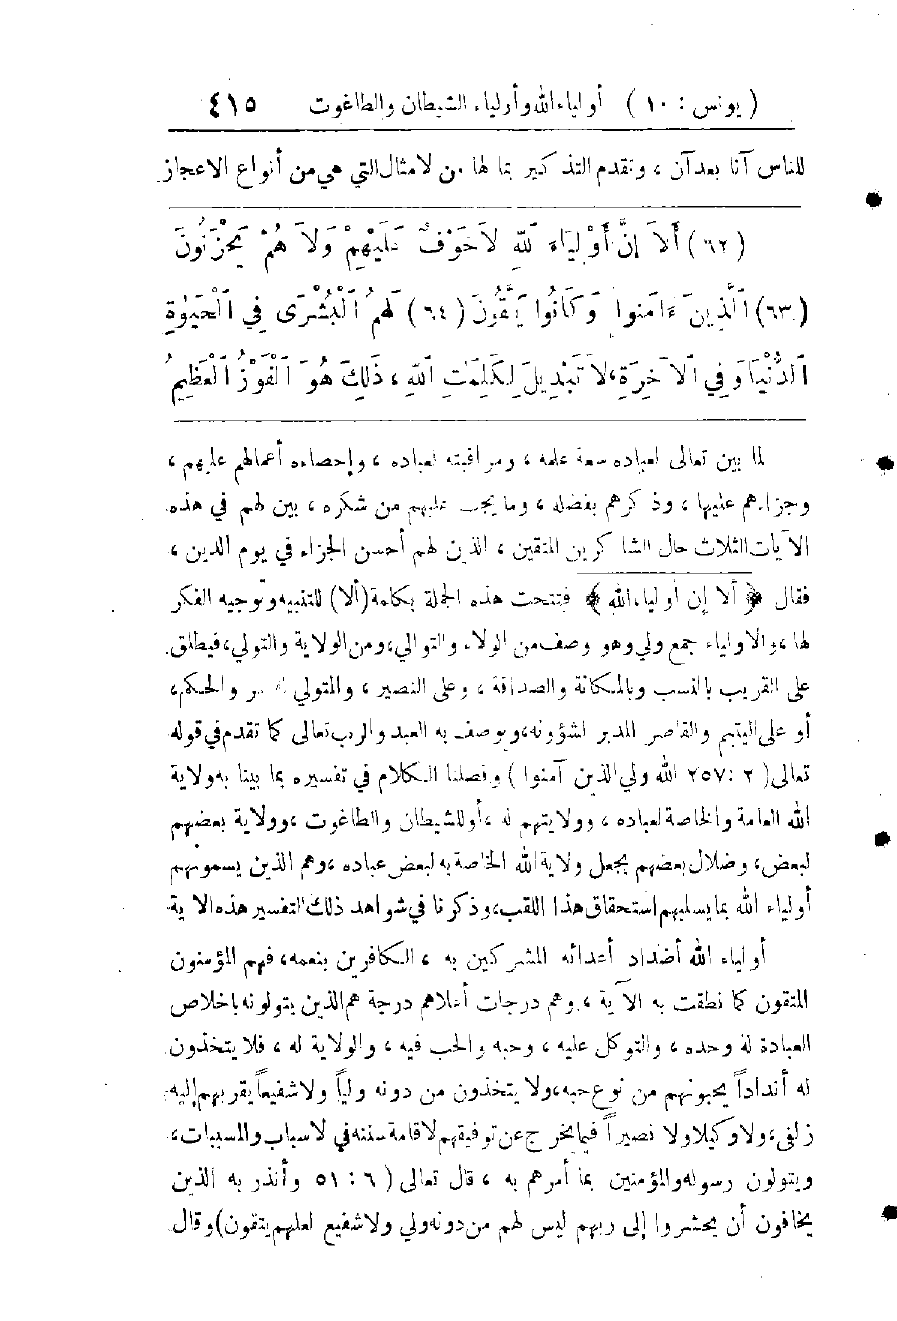 ( يونس : ١٠ ) أولياء الله وأولياء الشيطان والطاغوت ٤١٥
للناس آنا بعد آن ، وتقدم التذكير بما لها من الامثال التي هي من أنواع الاعجاز
(٦٢) أَلاَ إِنَّ أَوْلِيَاءَ للهِ لاَ خَوْفٌ عَلَيْهِمْ وَلاَ هُمْ يَحْزَنُونَ
(٦٣) الَّذِينَ ءَامَنوا وَكَانُوا يَتَّقُونَ (٦٤) لَهُمُ الْبُشْرَى فِي الْحَيَوٰةِ
الدُّنْيَا وَفِي الآخِرَةِ، لاَ تَبْدِيلَ لِكَلِمَتِ اللهِ ، ذَلِكَ هُوَ الْفَوْزُ الْعَظِيمُ
لما بين تعالى لعباده سعة علمه ، ومراقبته لعباده ، وإحصاءه أعمالهم عليهم ،
وجزاءهم عليها ، وذكرهم بفضله ، وما يجب عليهم من شكره ، بين لهم في هذه
الآيات الثلاث حال الشاكرين المتقين ، الذين لهم أحسن الجزاء في يوم الدين ،
فقال ﴿ ألا إن أولياء الله ﴾ فتتحت هذه الجملة بكلمة (ألا) للتنبيه وتوجيه الفكر
لها ، والاولياء جمع ولي وهو وصف من الولاء والتوالي، ومن الولاية والتولي، فيطلق
على القريب بالنسب وبالمكانة والصداقة ، وعلى النصير ، والمتولي للامر والحكم،
أو على اليتيم والقاصر المدبر لشؤونه، ويوصف به العبد والرب تعالى كما تقدم في قوله
تعالى ( ٢ : ٢٥٧ الله ولي الذين آمنوا ) وفصلنا الكلام في تفسيره بما بينا به ولاية
الله العامة والخاصة لعباده ، وولايتهم له ، أو للشيطان والطاغوت ، وولاية بعضهم
لبعض، وضلال بعضهم بجعل ولاية الله الخاصة به لبعض عباده ، وهم الذين يسمونهم
أولياء الله بما يسلبهم استحقاق هذا اللقب، وذكرنا في شواهد ذلك التفسير هذه الاية
أولياء الله أضداد أعدائه المشركين به ، الكافرين بنعمه، فهم المؤمنون
المتقون كما نطقت به الآية ، وهم درجات أعلاهم درجة هم الذين يتولونه باخلاص
العبادة له وحده ، والتوكل عليه ، وحبه والحب فيه ، والولاية له ، فلا يتخذون
له أنداداً يحبونهم من نوع حبه، ولا يتخذون من دونه ولياً ولا شفيعاً يقربهم إليه
زلفى، ولا وكيلا ولا نصيراً فيما يخرج عن توفيقهم لاقامة سننه في لاسباب والمسببات،
ويتولون رسوله والمؤمنين بما أمرهم به ، قال تعالى ( ٦ : ٥١ وأنذر به الذين
يخافون أن يحشروا إلى ربهم ليس لهم من دونه ولي ولا شفيع لعلهم يتقون) وقال